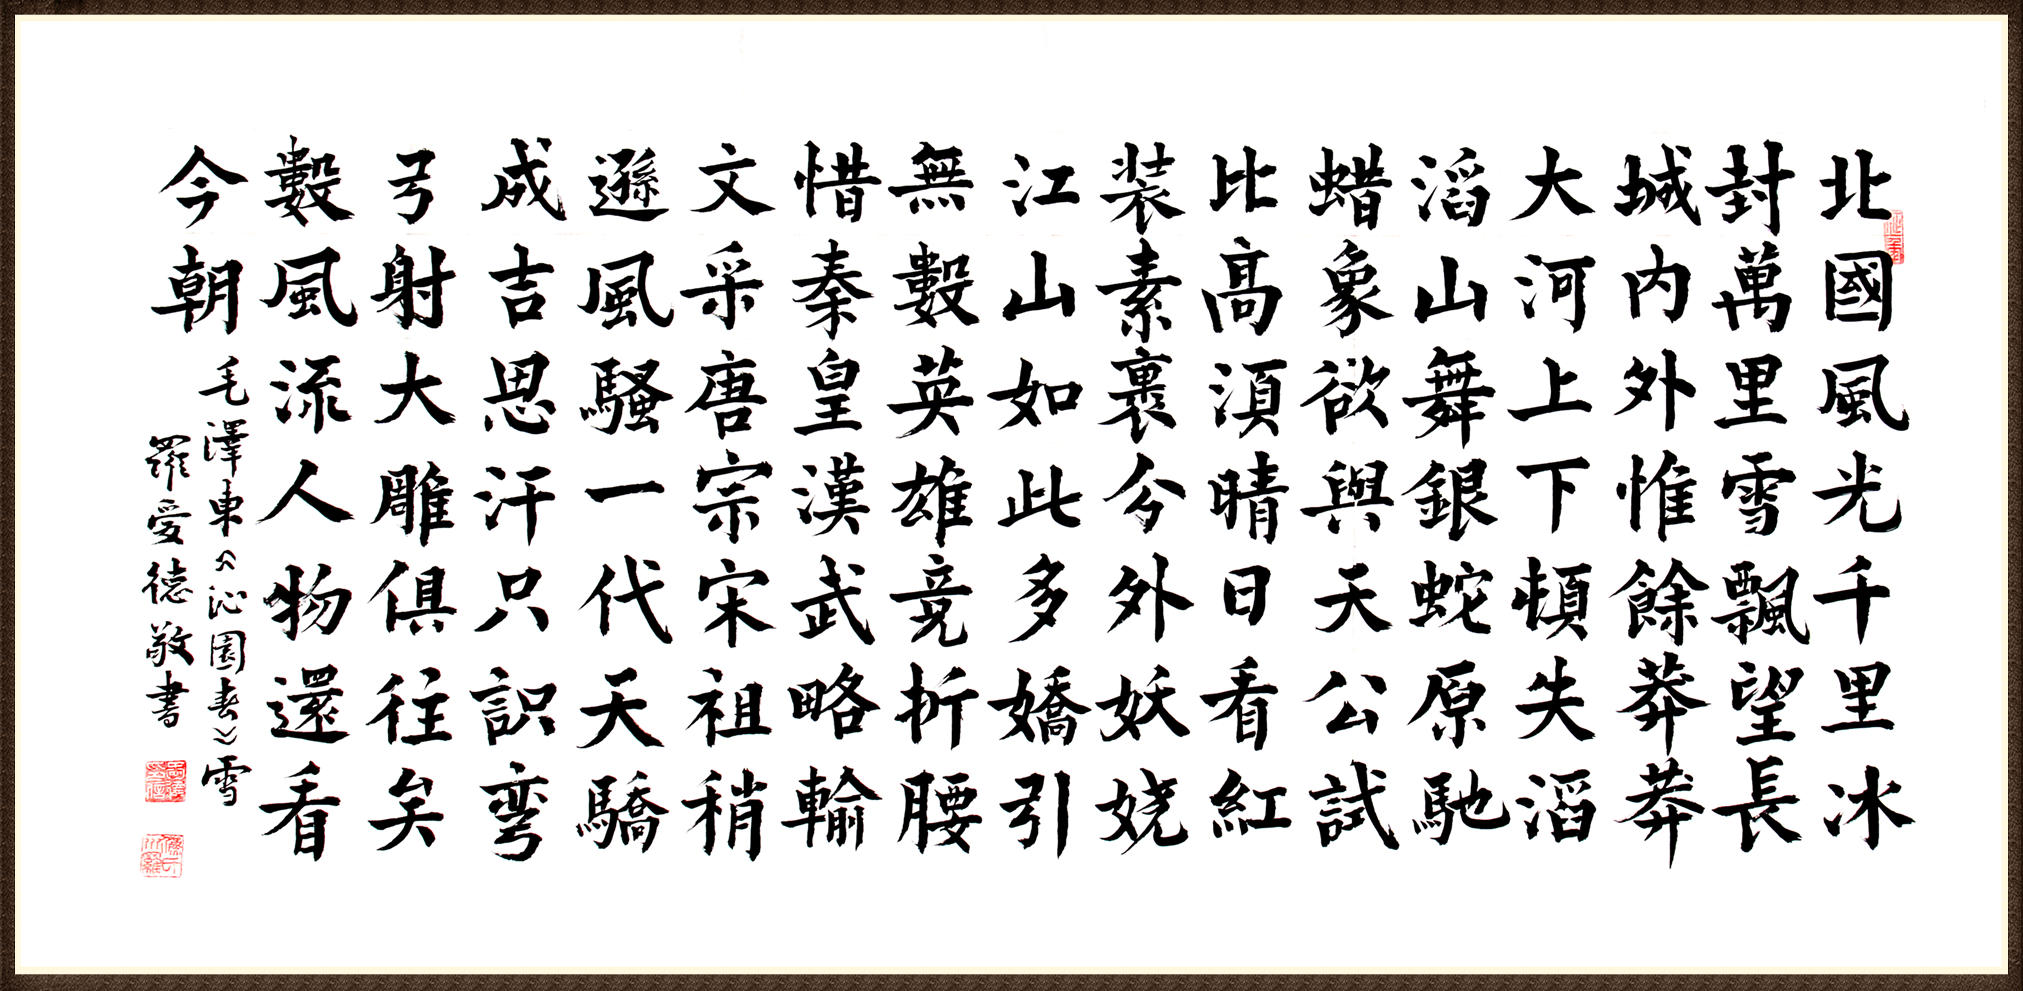 北國風光千里冰
封萬里雪飄望長
城内外惟餘莽莽
大河上下頓失滔
滔山舞銀蛇原馳
蜡象欲與天公試
比高須晴日看紅
装素裹分外妖娆
江山如此多嬌引
無數英雄竞折腰
惜秦皇漢武略輸
文采唐宗宋祖稍
遜風騷一代天驕
成吉思汗只識弯
弓射大雕俱往矣
數風流人物還看
今朝
毛澤東《沁園春》雪
羅爱德敬書